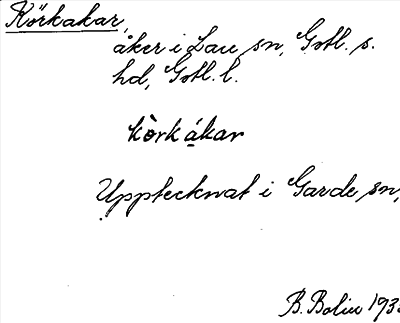 Körkakar,
åker i Lau sn, Gotl. s.
hd, Gotl. l.
kò̀rkákar
Upptecknat i Garde sn,
B. Bolin 193